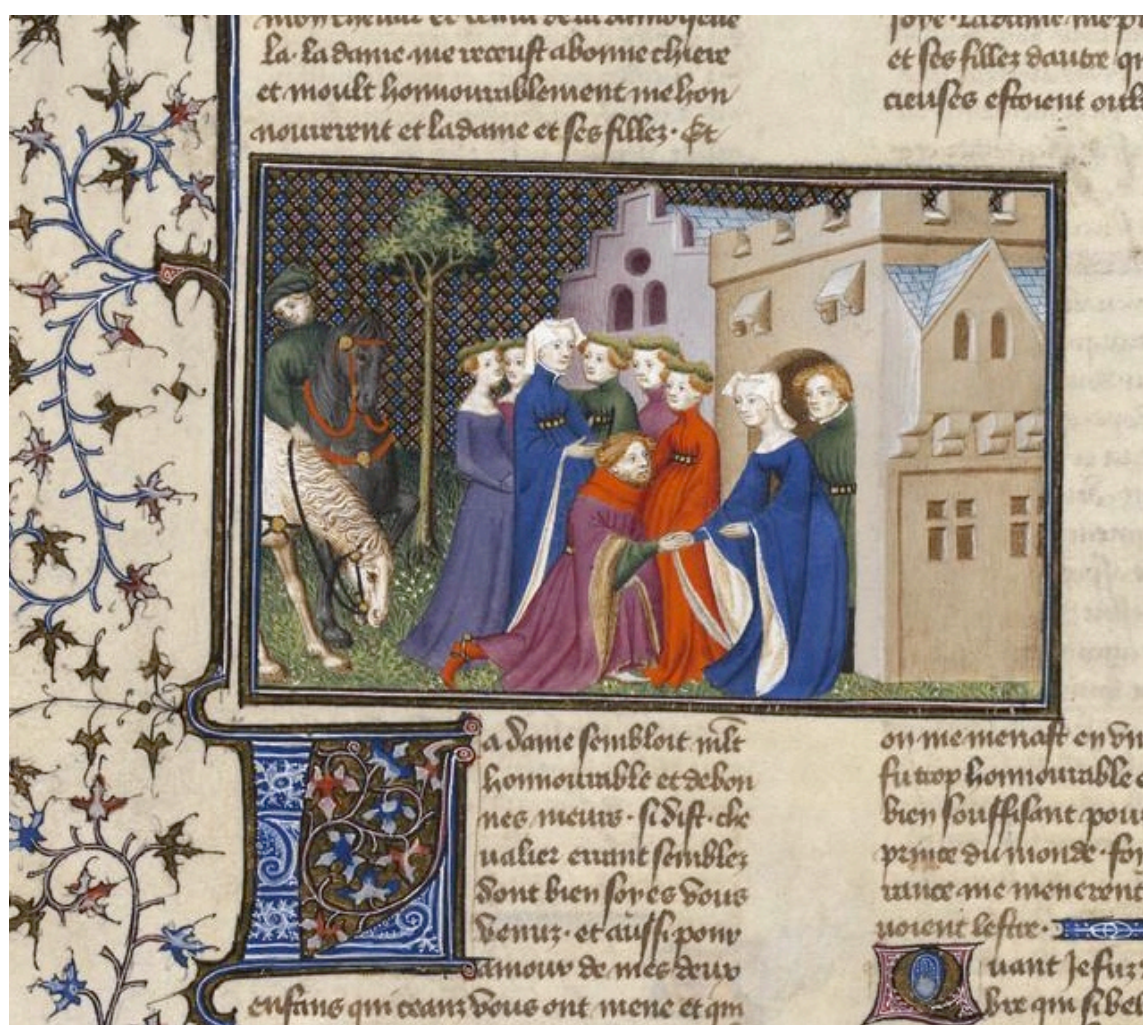 mon cheual et celui de la damoyselle
la. la dame me receust a bonne chiere
et moult honnourablement me hon
nourerent et la dame et ses filles. Et
La dame sembloit mlt
honnourable et de bon
nes meurs. si dist. che
ualier errant semblez
dont bien soyes vous
venuz. et aussi pour
lamour de mes deux
enfans qui ceanz vous ont mene et qui
ioye. la dame me
et ses filles dautre
cieuses estoient
on me menast en vn
fu trop honnourable
bien souffisant pour
prince du monde.
me menerent
uoient lestre.
Quant Je fuz
bre qui si bel